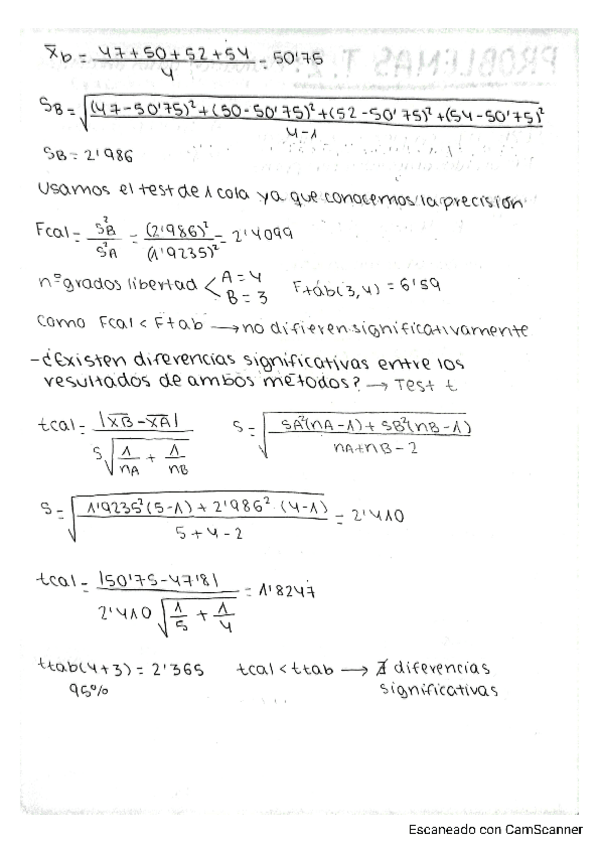 x̄b = (47+50+52+54)/4 = 50'75
SB = √((47-50'75)²+(50-50'75)²+(52-50'75)²+(54-50'75)²/(4-1))
SB = 2'986
Usamos el test de 1 cola ya que conocemos la precisión
Fcal = S²B/S²A = (2'986)²/(1'9235)² = 2'4099
nº grados libertad < A = 4 B = 3 Ftab(3,4) = 6'59
Como Fcal < Ftab → no difieren significativamente
- ¿Existen diferencias significativas entre los
resultados de ambos métodos? → Test t
tcal = |x̄B - x̄A|/(S√(1/nA + 1/nB)) S = √((SA²(nA-1) + SB²(nB-1))/(nA+nB-2))
S = √((1'9235²(5-1) + 2'986²·(4-1))/(5+4-2)) = 2'410
tcal = |50'75-47'8|/(2'410√(1/5 + 1/4)) = 1'8247
ttab(4+3) = 2'365 tcal < ttab → ∄ diferencias
95% significativas
Escaneado con CamScanner